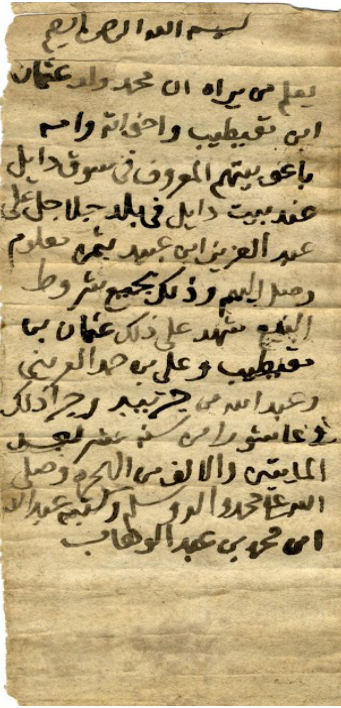 بسم الله الرحمن الرحيم
يعلم من يراه ان محمد ولد عثمان
ابن مقيطيب واخواته وامه
باعو بيتهم المعروف في سوق دايل
عند بيت دايل في بلد جلاجل على
عبد العزيز ابن عبيد بثمن معلوم
وصل اليهم وذلك بجميع شروط
البيع شهد على ذلك عثمان بن
مقيطيب وعلي بن حمد
وعبدالله بن وجرا ذلك
عاشورا من سنة عشر بعد
المايتين والالف من الهجرة وصلى
الله على محمد واله وسلم وكتبه عبدالله
ابن محمد بن عبد الوهاب